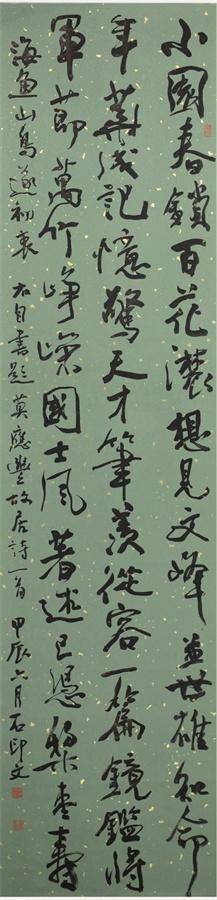 小園春鎖百花濃想見文峰並世雄知命
年華成記憶驚天才筆羨從容一篇鏡鑑將
軍節萬竹崢嶸國士風著述已憑梨棗壽
海魚山鳥遂初衷 右自書題莫應豐故居詩一首 甲辰六月石印文